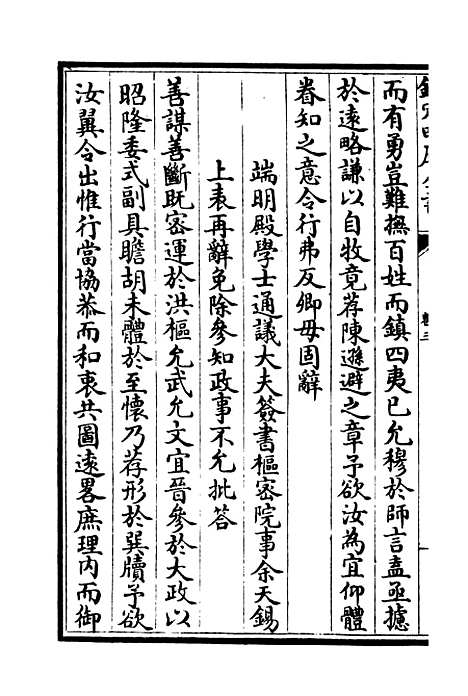 而有勇豈難撫百姓而鎮四夷已允穆於師言盍亟攄
於遠略謙以自牧竟荐陳遜避之章予欲汝為宜仰體
眷知之意令行弗反卿毋固辭
端明殿學士通議大夫簽書樞密院事余天錫
上表再辭免除參知政事不允批答
善謀善斷既密運於洪樞允武允文宜晉參於大政以
昭隆委式副具瞻胡未體於至懷乃荐形於巽牘予欲
汝翼令出惟行當協恭而和衷共圖遠畧庶理內而御